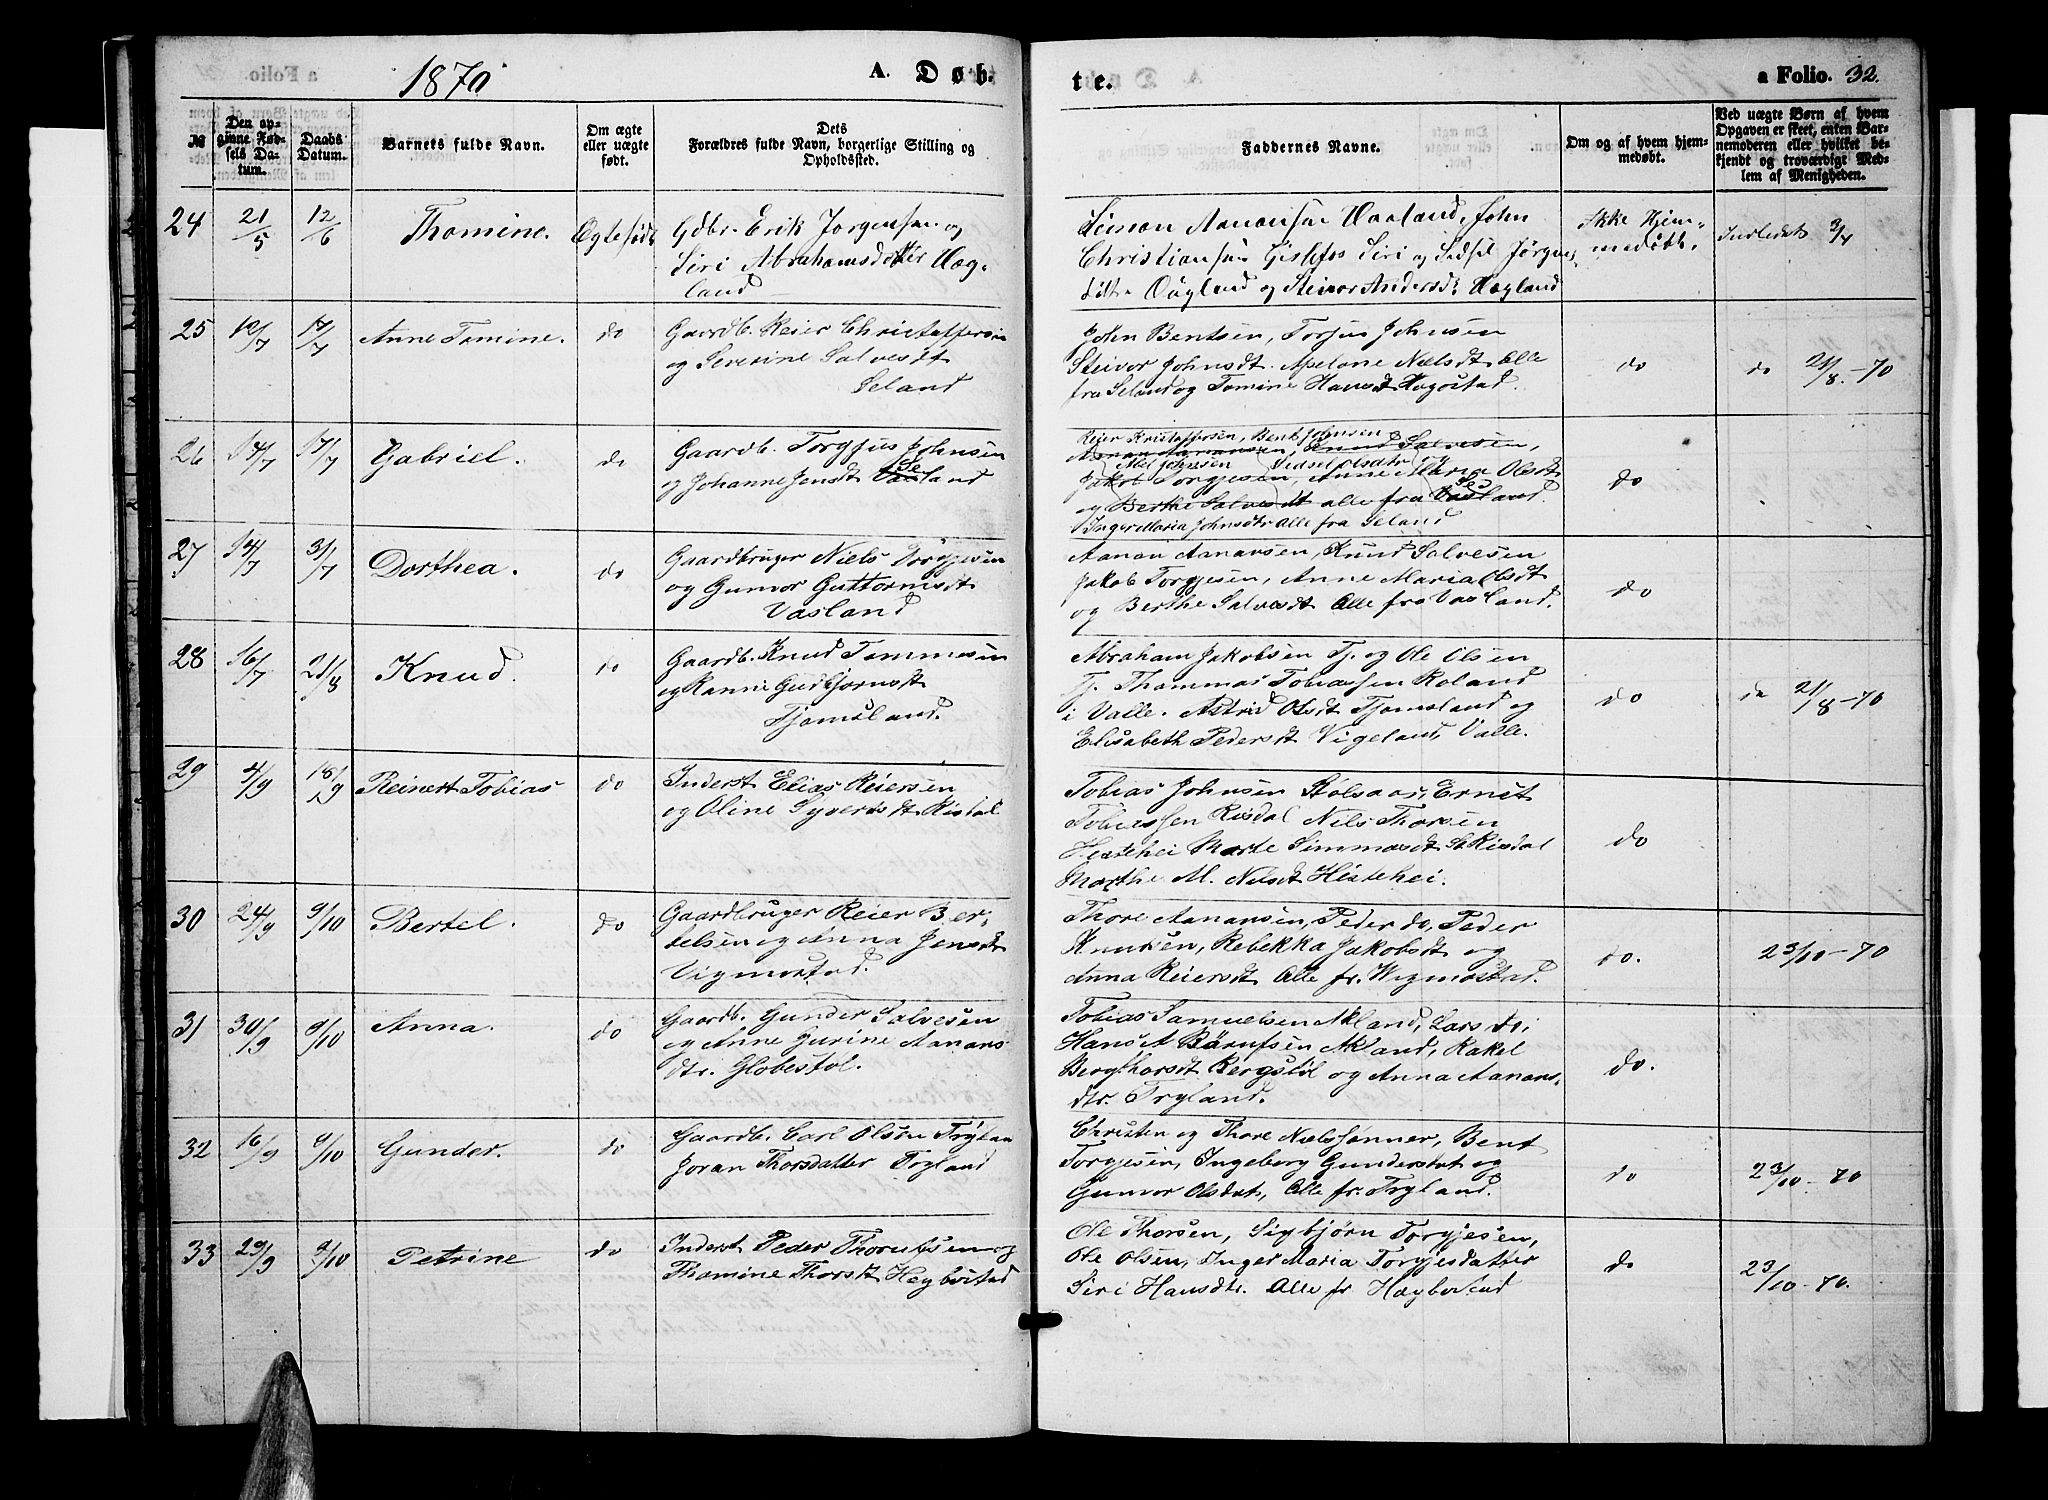 1870
A. Døb-
te.
a Folio. 32.
№
Den op-
givne Fød-
sels Da-
tum.
Daabs
Datum.
Barnets fulde Navn.
Om ægte
eller uægte
født.
Dets
Forældres fulde Navn, borgerlige Stilling og
Opholdssted.
Faddernes Navne.
Om og af hvem hjem-
medøbt.
Ved uægte Børn af hvem
Opgaven er skeet, enten Bar-
nemoderen eller hvilket be-
kjendt og troværdigt Med-
lem af Menigheden.
24 21/5 12/6 Thomine. Ægtefødt
Gdbr. Erik Jørgensen og
Siri Abrahamsdatter Hæg-
land
Simon Aanonsen Haaland, John
Christiansen Gislefos Siri og Sidsel Jørgens-
datter Øugland og Steinor Andersdt. Hægland
Ikke Hjem-
medøbt.
Indledet 3/7
25 12/7 17/7 Anne Tomine. do
Gaardb. Reier Christoffersen
og Severine Salvesdt
Seland
John Bentsen, Torjus Johnsen
Steivor Johnsdt. Apelone Nielsdt alle
fra Seland og Tomine Hansdt Høgostad.
do
do 21/8 - 70
26 14/7 17/7 Gabriel. do
Gaardb. Torgjus Johnsen
og Johanne Jensdt Vasland
Se
Reier Kristoffersen, Bent Johnsen
Aanon Aanonsen, Knud Salvesen,
Abel Johnsen Sidsel Olsdatter
Jakob Torgjesen, Anne Maria Olsdt
og Berthe Salvesdt alle fra Vasland.
Inger Maria Johnsdtr alle fra Seland
do
27 14/7 31/7 Dorthea. do
Gaardbruger Niels Torgjesen
og Gunvor Guttormsdt
Vasland
Aanon Aanonsen, Knud Salvesen
Jakob Torgjesen, Anne Maria Olsdt
og Berthe Salvesdt Alle fra Vasland.
do
28 16/7 21/8 Knud. do
Gaardb. Knud Tommesen
og Ranne Gudbjornsdt
Tjomsland.
Abraham Jakobsen Tj. og Ole Olsen
Tj. Thommas Tobiassen Roland
i Valle. Astrid Olsdt Tjomsland og
Elisabeth Pedersdt Vigeland, Valle.
do
do 21/8 - 70
29 4/9 18/9 Reinert Tobias do
Inderst Elias Reiersen
og Oline Syversdt Risdal
Tobias Johnsen Stølsaas, Ernst
Tobiassen Risdal Nils Thorsen
Hestehei Marte Simmosdt St. Risdal
Marthe M. Nilsdt Hestehei.
do
30 24/9 9/10 Bertel. do
Gaardbruger Reier Ber-
telsen og Anna Jensdt
Vigmostad.
Thore Aanansen, Peder do, Peder
Knudsen, Rebekka Jakobsdt og
Anna Reiersdt Alle fr. Wigmostad.
do.
23/10 - 70
31 30/9 9/10 Anna. do
Gaardb. Gunder Salvesen
og Anne Gurine Aanans-
dtr. Globestøl.
Tobias Samuelsen Akland, Lars do.
Hans A Børufsen Akland, Rakel
Bergthorsdt Bergstøl og Anna Aanans-
dtr. Tryland.
do.
32 16/9 9/10 Gunder. do
Gaardb. Carl Olsen Trylan
Joran Thorsdatter Tryland
Christen og Thore Nielssønner, Bent
Torgjesen, Ingeborg Gundersdat og
Gunvor Olsdat, Alle fr. Tryland.
do
23/10 - 70
33 29/9 9/10 Petrine do
Inderst Peder Thorufsen og
Thomine Thorsdt Hegbostad
Ole Thorsen, Sigbjørn Torgjesen,
Ole Olsen, Inger Maria Torgjesdatter
Siri Hansdtr. Alle fr Hægbostad
do
23/10 - 70.